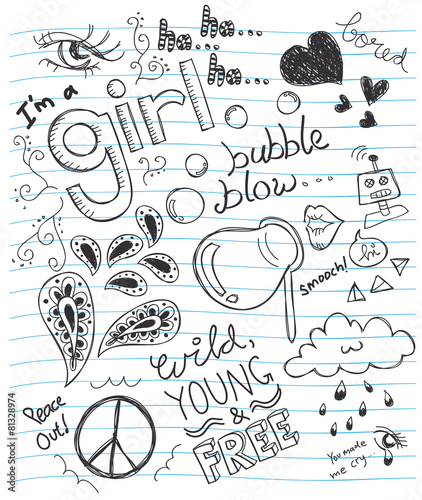 ha..
ha...
ha...
bored
I'm a
girl
bubble
blow...
hi
smooch!
Wild,
YOUNG
&
FREE
Peace
Out!
You made
me cry...
Adobe Stock | #81328974